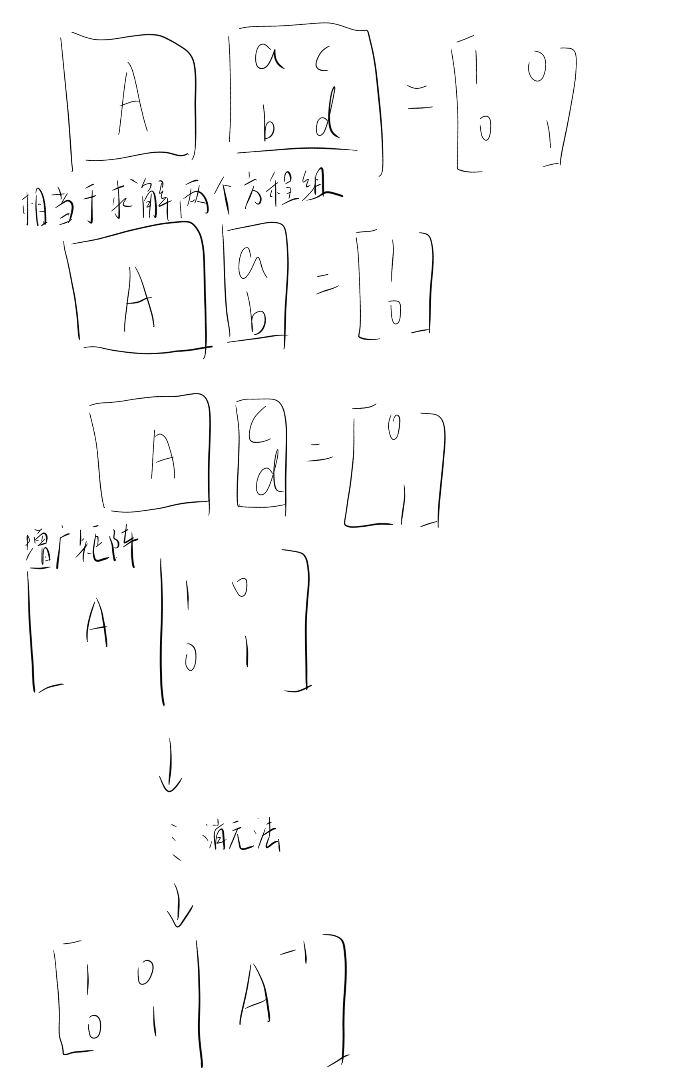 A [a c
b d] = [1 0
0 1]
相当于求解两个方程组
A [a
b] = [1
0]
A [c
d] = [0
1]
增广矩阵
[A | 1 0
0 1]
↓
⋮ 消元法
↓
[1 0
0 1 | A⁻¹]